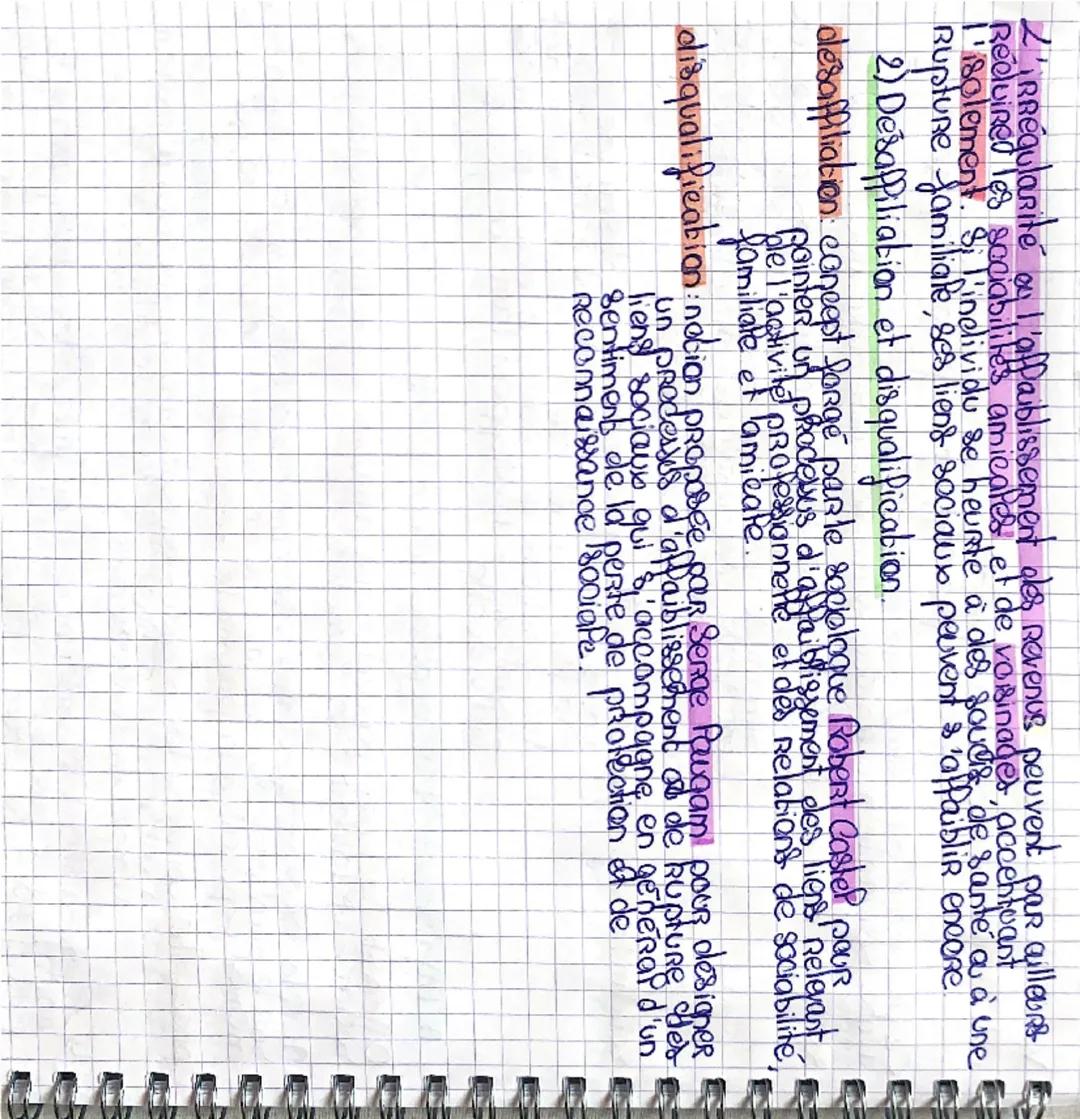 L'irrégularité ou l'affaiblissement des revenus peuvent par ailleurs
réduires les sociabilités amicales et de voisinages, accentuant
l'isolement. Si l'individu se heurte à des soucis de santé ou à une
rupture familiale, ses liens sociaux peuvent s'affaiblir encore.
2) Désaffiliation et disqualification.
désaffiliation: concept forgé par le sociologue Robert Castel pour
pointer un processus d'affaiblissement des liens relevant
de l'activité professionnelle et des relations de sociabilité,
familiale et amicale.
disqualification: notion proposée par Serge Paugam pour désigner
un processus d'affaiblissement et de rupture des
liens sociaux qui s'accompagne en général d'un
sentiment de la perte de protection et de
reconnaissance sociale.